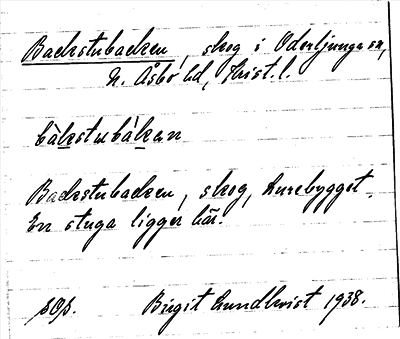 Backstubacken, skog i Oderljunga sn,
N. Åsbo hd, Krist. l.
bàkstubàkan
Backstubacken, skog, Lurebygget.
En stuga ligger här.
Birgit Lundkvist 1938.